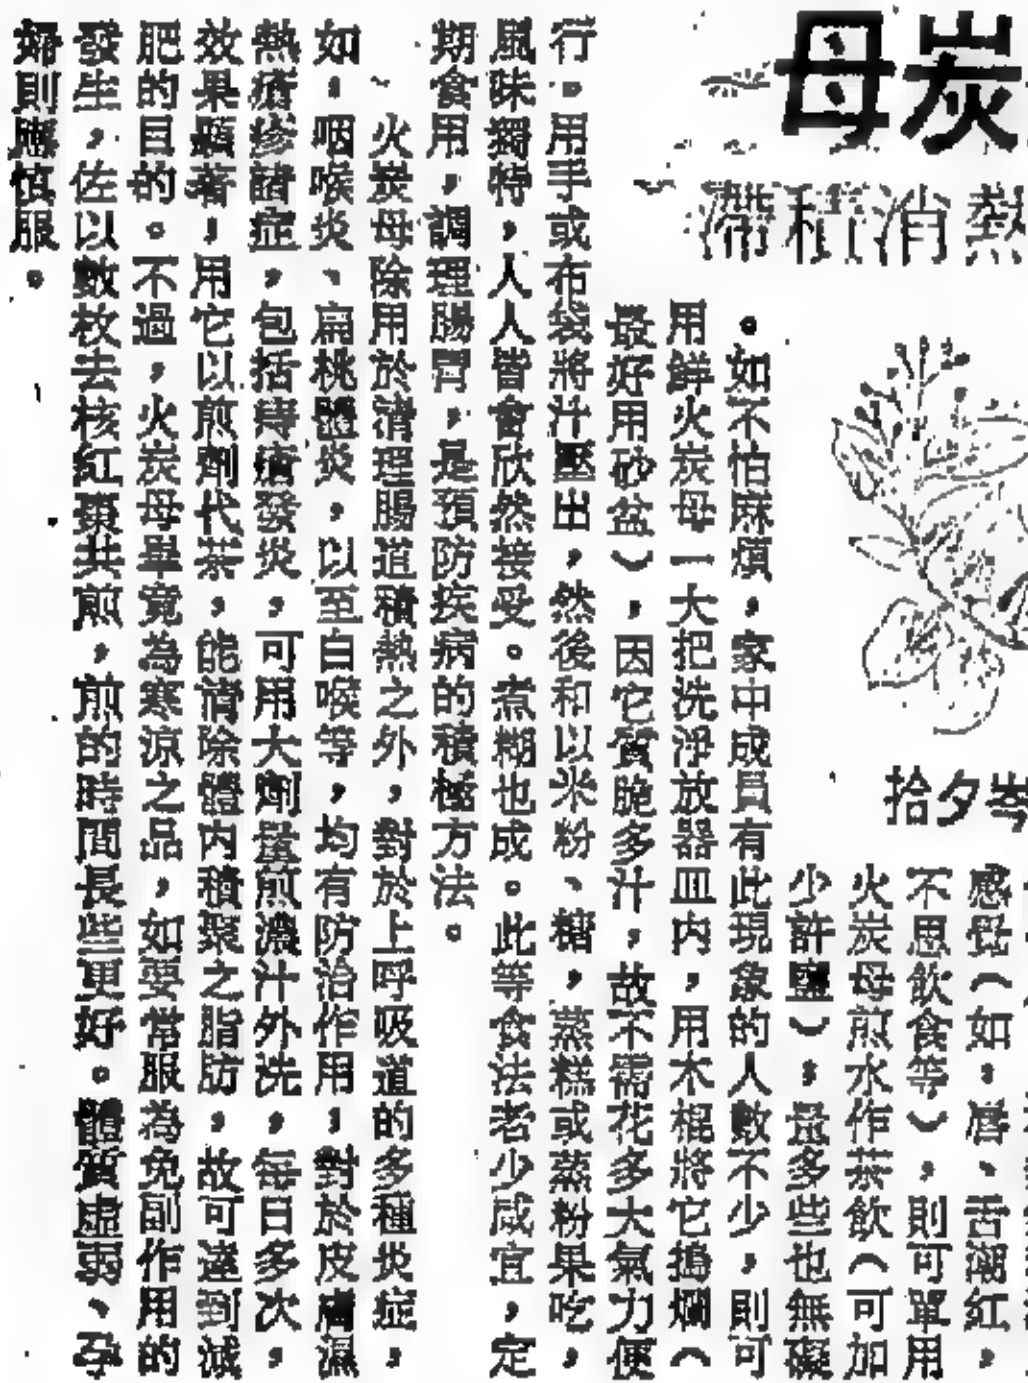 炭母
熱消積滯
拾夕岑
感覺（如：唇、舌潮紅，
不思飲食等），則可單用
火炭母煎水作茶飲（可加
少許鹽），量多些也無礙
。如不怕麻煩，家中成員有此現象的人數不少，則可
用鮮火炭母一大把洗淨放器皿内，用木棍將它搗爛（
最好用砂盆），因它質脆多汁，故不需花多大氣力便
行。用手或布袋將汁壓出，然後和以米粉、糖，蒸糕或蒸粉果吃，
風味獨特，人人皆會欣然接受。煮糊也成。此等食法老少咸宜，定
期食用，調理腸胃，是預防疾病的積極方法。
火炭母除用於清理腸道積熱之外，對於上呼吸道的多種炎症，
如：咽喉炎、扁桃體炎，以至白喉等，均有防治作用；對於皮膚濕
熱瘡疹諸症，包括痔瘡發炎，可用大劑量煎濃汁外洗，每日多次，
效果顯著；用它以煎劑代茶，能清除體内積聚之脂肪，故可達到減
肥的目的。不過，火炭母畢竟為寒涼之品，如要常服為免副作用的
發生，佐以數枚去核紅棗共煎，煎的時間長些更好。體質虛弱、孕
婦則應慎服。